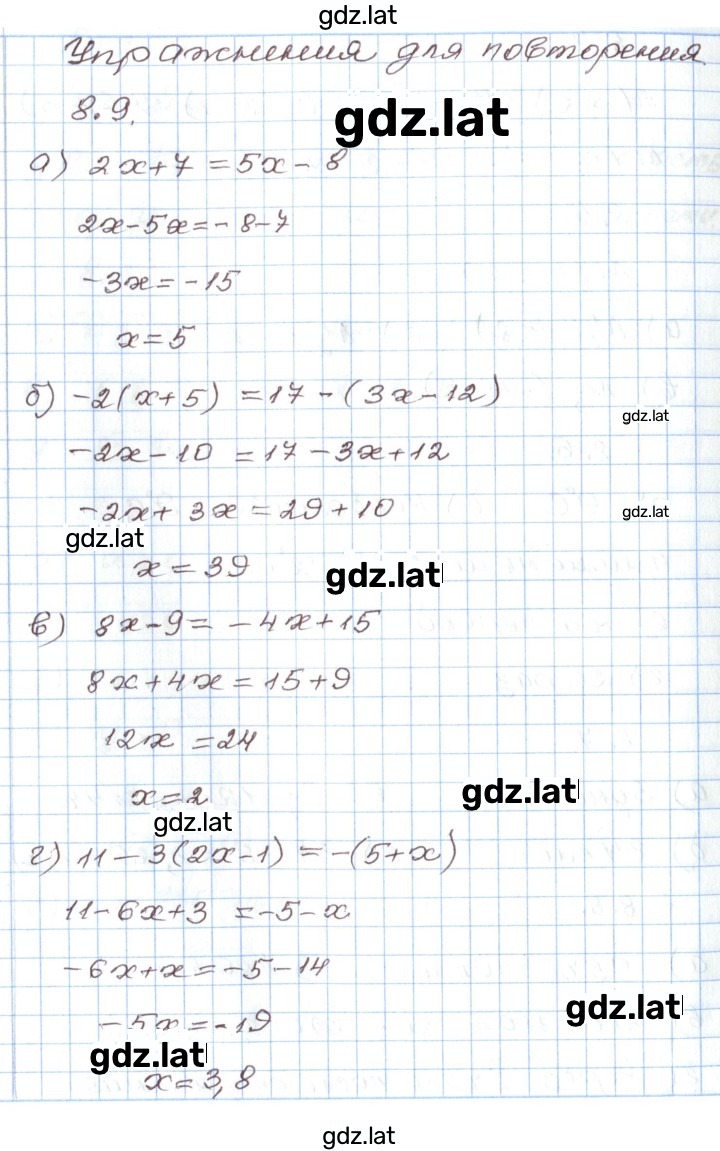 gdz.lat
Упражнения для повторения
8.9.
gdz.lat
а) 2x+7 = 5x - 8
2x-5x = - 8-7
-3x = -15
x = 5
б) -2(x+5) = 17 - (3x-12)
gdz.lat
-2x-10 = 17-3x+12
-2x+ 3x = 29+10
gdz.lat
gdz.lat
x = 39
gdz.lat
в) 8x-9 = -4x+15
8x+4x = 15+9
12x = 24
x=2
gdz.lat
gdz.lat
г) 11-3(2x-1) = -(5+x)
11-6x+3 = -5-x
-6x+x = -5-14
gdz.lat
-5x = -19
gdz.lat
x = 3,8
gdz.lat